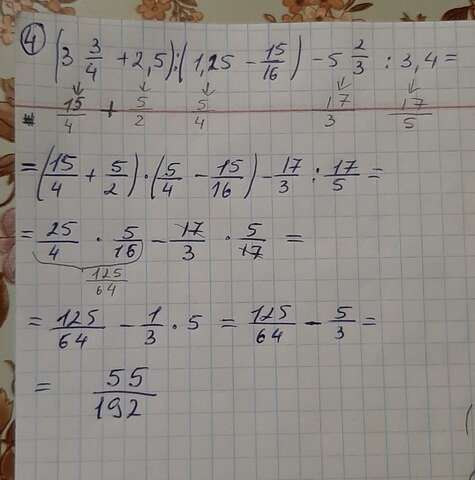 4 (3 3/4 + 2,5) : (1,25 - 15/16) - 5 2/3 : 3,4 =
15/4 + 5/2 5/4 17/3 17/5
= (15/4 + 5/2) · (5/4 - 15/16) - 17/3 : 17/5 =
= 25/4 · 5/16 - 17/3 · 5/17 =
125/64
= 125/64 - 1/3 · 5 = 125/64 - 5/3 =
= 55/192